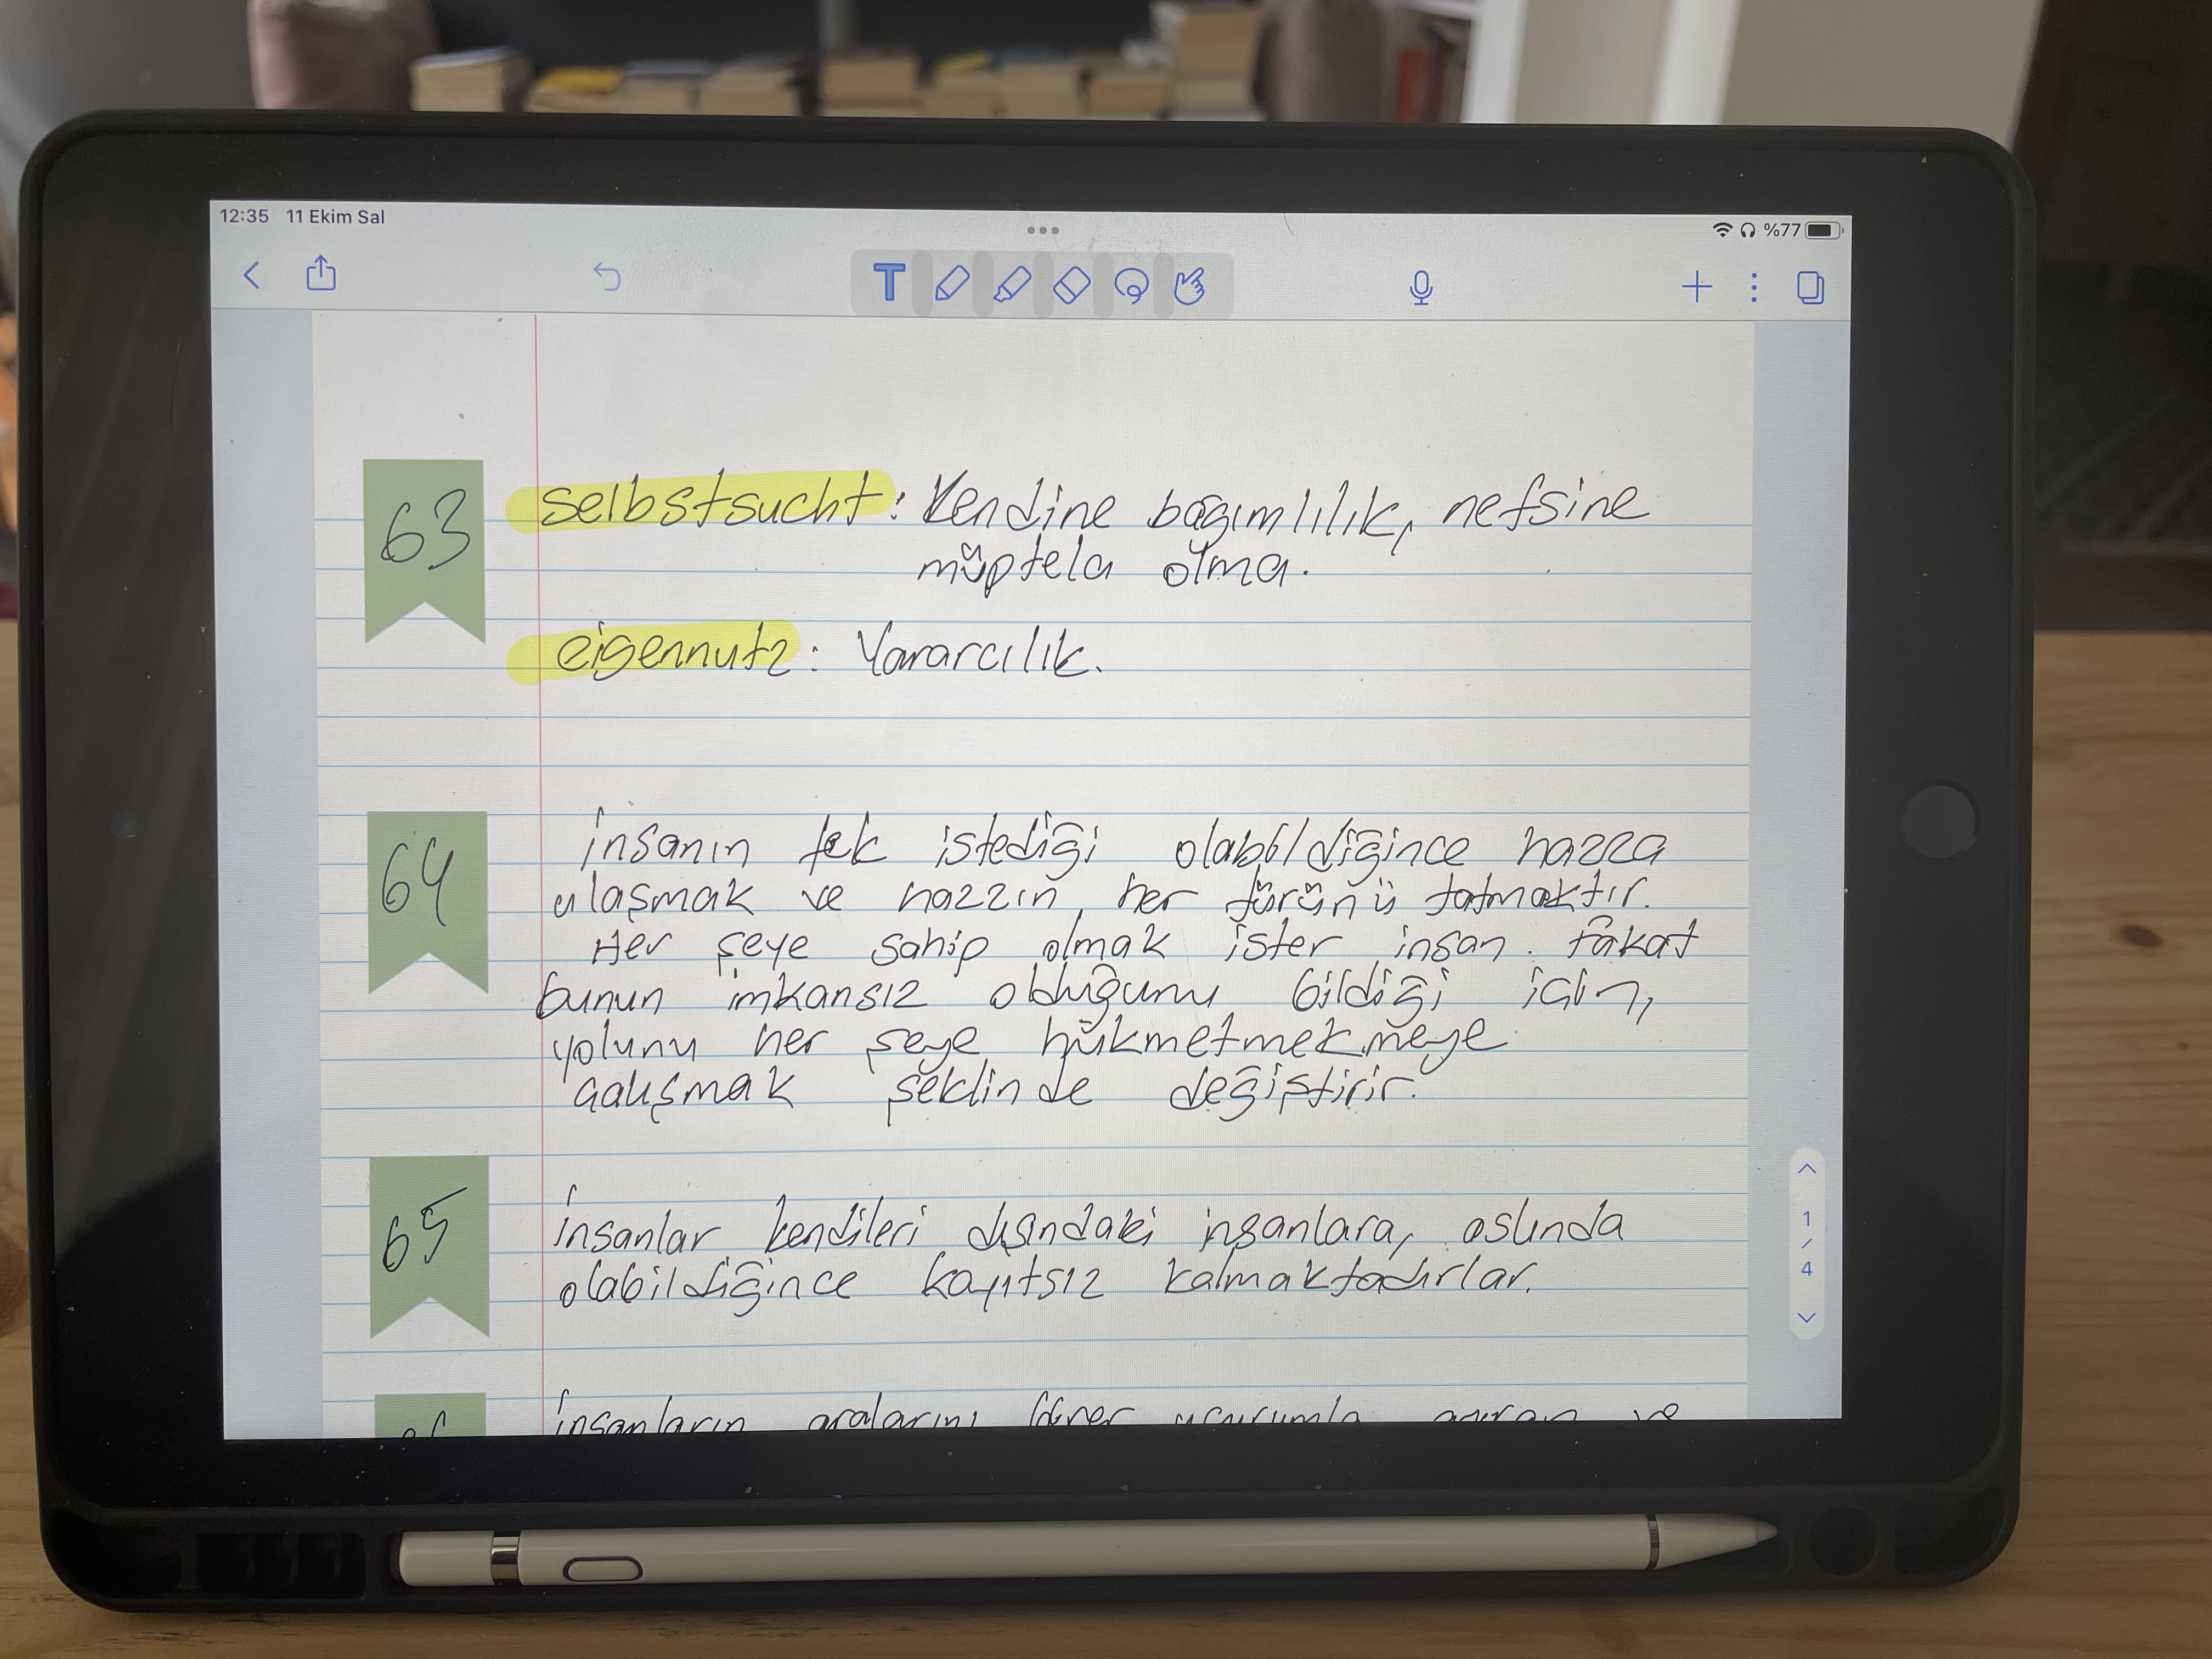 12:35 11 Ekim Sal
%77
T
63
selbstsucht: Kendine bağımlılık, nefsine
müptela olma.
eigennutz: Yararcılık.
64
İnsanın tek istediği olabildiğince hazza
ulaşmak ve hazzın her türünü tatmaktır.
Her şeye sahip olmak ister insan. Fakat
bunun imkansız olduğunu bildiği için,
yolunu her şeye hükmetmekmeye
çalışmak şeklinde değiştirir.
65
İnsanlar kendileri dışındaki insanlara, aslında
olabildiğince kayıtsız kalmaktadırlar.
1
/
4
İnsanların aralarını ve